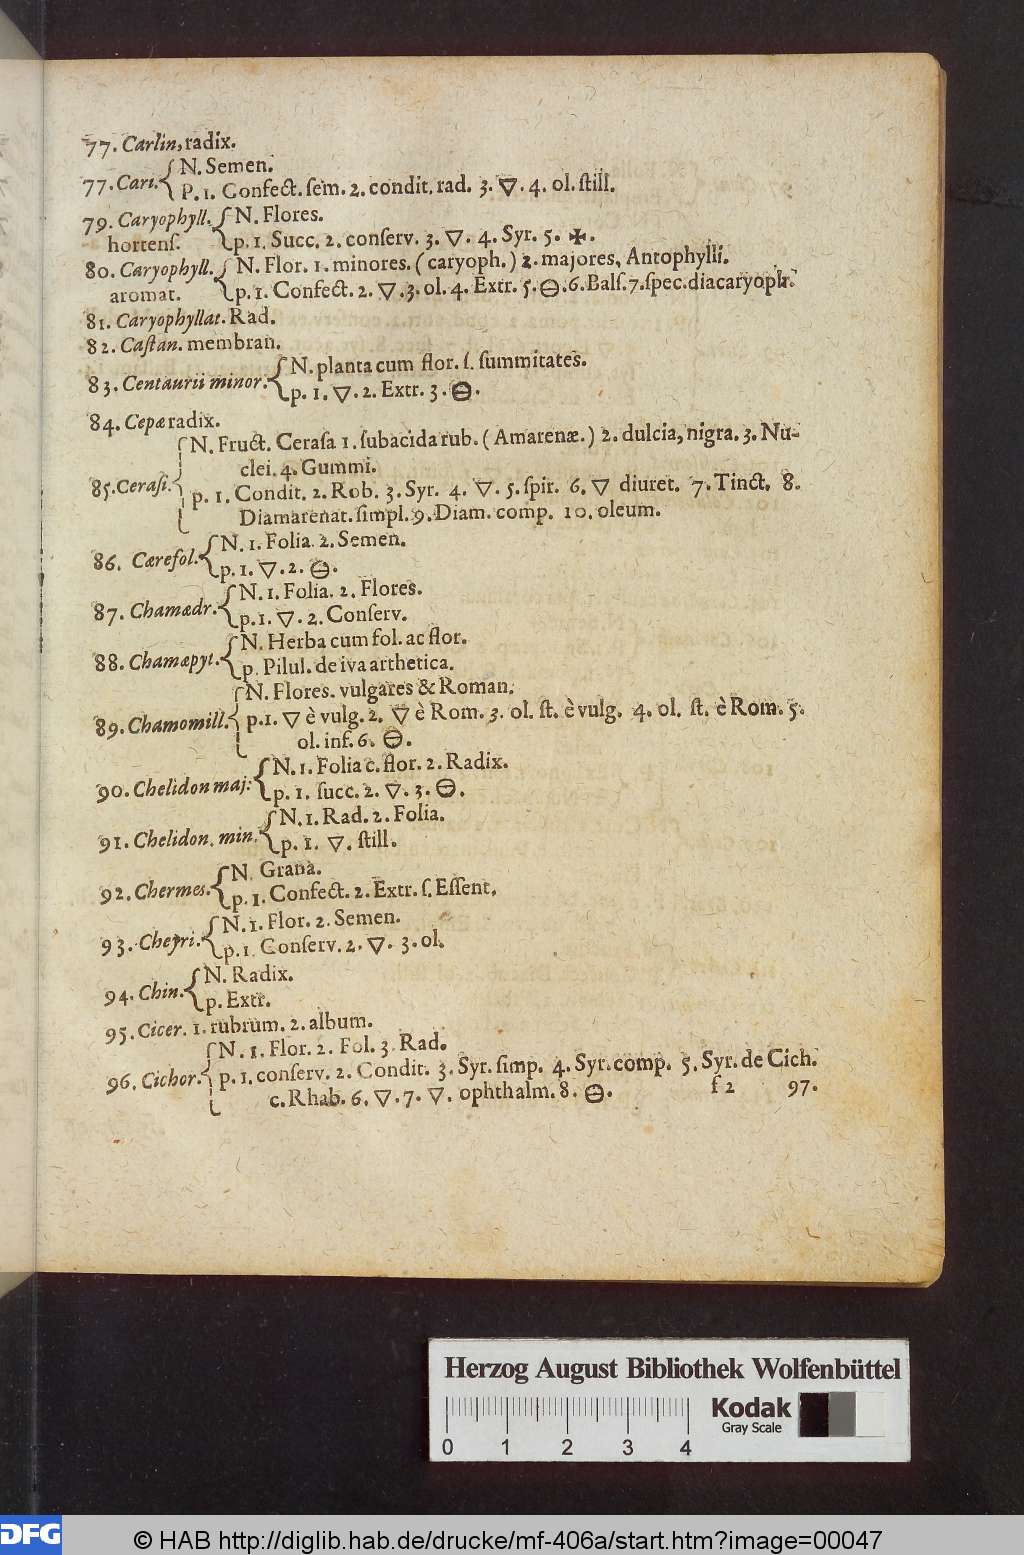 77. Carlin, radix.
77. Cari. { N. Semen.
P. 1. Confect. ſem. 2. condit. rad. 3. 🜄. 4. ol. ſtill.
79. Caryophyll. { N. Flores.
hortenſ. p. 1. Succ. 2. conſerv. 3. 🜄. 4. Syr. 5. ✠.
80. Caryophyll. { N. Flor. 1. minores. (caryoph.) 2. majores, Antophylli.
aromat. p. 1. Confect. 2. 🜄. 3. ol. 4. Extr. 5. 🜔. 6. Balſ. 7. ſpec. diacaryoph.
81. Caryophyllat. Rad.
82. Caſtan. membran.
83. Centaurii minor. { N. planta cum flor. ſ. ſummitates.
p. 1. 🜄. 2. Extr. 3. 🜔.
84. Cepæ radix.
85. Ceraſi. { N. Fruct. Ceraſa 1. ſubacida rub. (Amarenæ.) 2. dulcia, nigra. 3. Nu-
clei. 4. Gummi.
p. 1. Condit. 2. Rob. 3. Syr. 4. 🜄. 5. ſpir. 6. 🜄 diuret. 7. Tinct. 8.
Diamarenat. ſimpl. 9. Diam. comp. 10. oleum.
86. Cærefol. { N. 1. Folia. 2. Semen.
p. 1. 🜄. 2. 🜔.
87. Chamædr. { N. 1. Folia. 2. Flores.
p. 1. 🜄. 2. Conſerv.
88. Chamæpyt. { N. Herba cum fol. ac flor.
p. Pilul. de iva arthetica.
89. Chamomill. { N. Flores. vulgares & Roman.
p. 1. 🜄 è vulg. 2. 🜄 è Rom. 3. ol. ſt. è vulg. 4. ol. ſt. è Rom. 5.
ol. inf. 6. 🜔.
90. Chelidon maj: { N. 1. Folia c. flor. 2. Radix.
p. 1. ſucc. 2. 🜄. 3. 🜔.
91. Chelidon. min. { N. 1. Rad. 2. Folia.
p. 1. 🜄. ſtill.
92. Chermes. { N. Grana.
p. 1. Confect. 2. Extr. ſ. Eſſent.
93. Cheyri. { N. 1. Flor. 2. Semen.
p. 1. Conſerv. 2. 🜄. 3. ol.
94. Chin. { N. Radix.
p. Extr.
95. Cicer. 1. rubrum. 2. album.
96. Cichor. { N. 1. Flor. 2. Fol. 3. Rad.
p. 1. conſerv. 2. Condit. 3. Syr. ſimp. 4. Syr. comp. 5. Syr. de Cich.
c. Rhab. 6. 🜄. 7. 🜄. ophthalm. 8. 🜔.
f 2 97.
Herzog August Bibliothek Wolfenbüttel
Kodak
Gray Scale
0 1 2 3 4
DFG © HAB http://diglib.hab.de/drucke/mf-406a/start.htm?image=00047